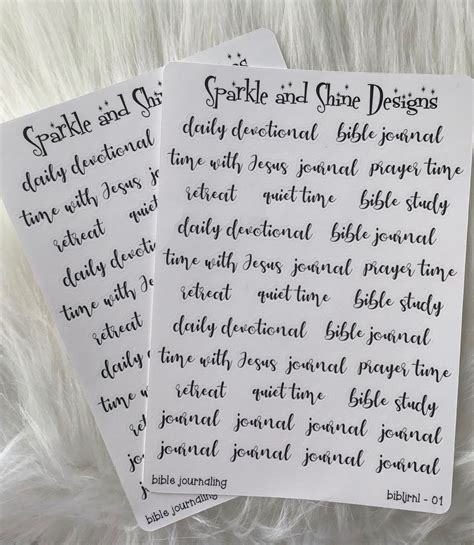 Sparkle and Shine Designs
daily devotional bible journal
time with Jesus journal prayer time
retreat quiet time bible study
daily devotional bible journal
time with Jesus journal prayer time
retreat quiet time bible study
daily devotional bible journal
time with Jesus journal prayer time
retreat quiet time bible study
journal journal journal journal
journal journal journal journal
bible journaling
bibljrnl - 01
Sparkle and Shi
daily devotional
time with Jesus j
retreat quiet
daily devotional
time with Jesus
retreat
daily devotional
time with
retreat
journal
journal
bible journaling